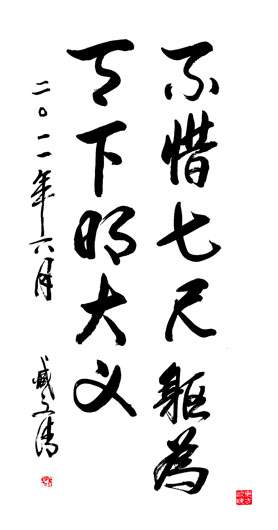 不惜七尺躯为
天下明大义
二〇一一年六月
臧文涛